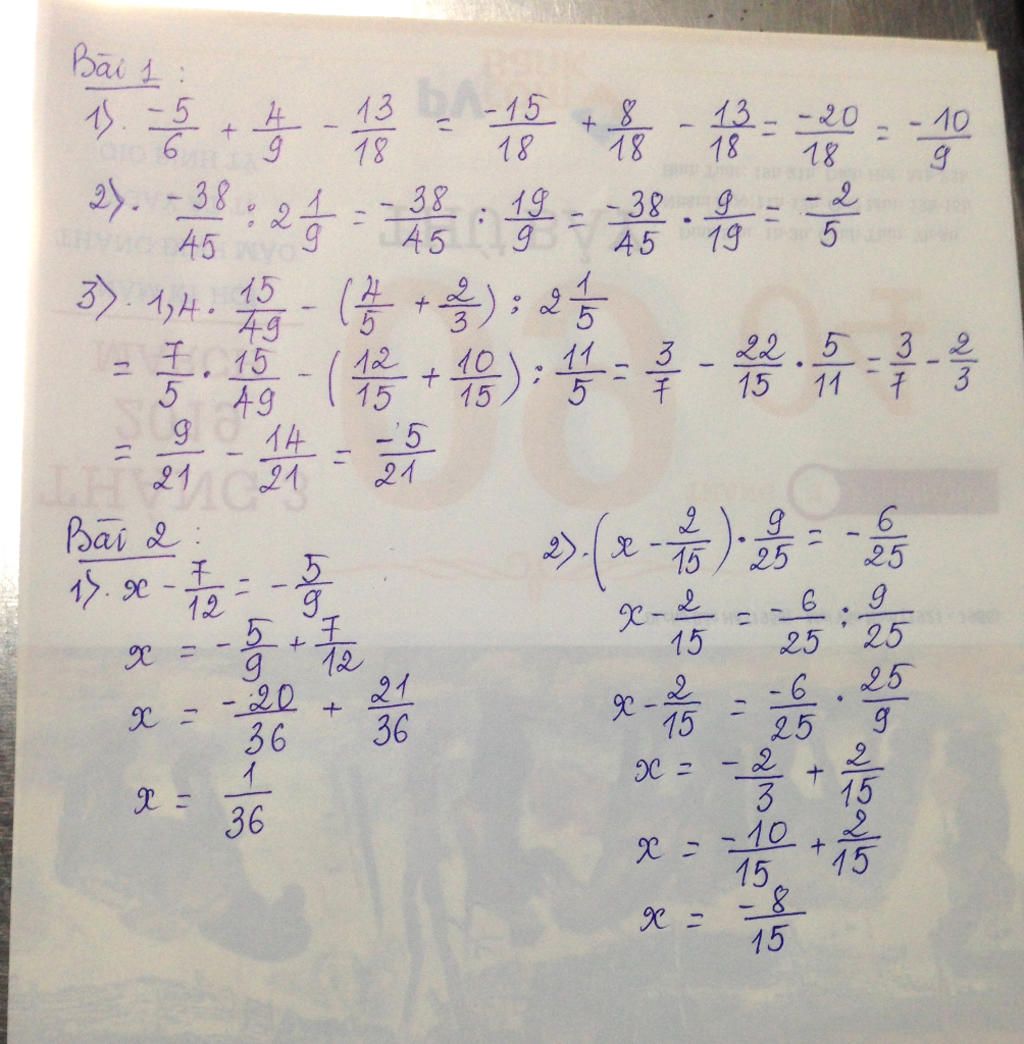 Bài 1 :
1). -5/6 + 4/9 - 13/18 = -15/18 + 8/18 - 13/18 = -20/18 = -10/9
2). -38/45 : 2 1/9 = -38/45 : 19/9 = -38/45 . 9/19 = -2/5
3). 1,4 . 15/49 - (4/5 + 2/3) : 2 1/5
= 7/5 . 15/49 - (12/15 + 10/15) : 11/5 = 3/7 - 22/15 . 5/11 = 3/7 - 2/3
= 9/21 - 14/21 = -5/21
Bài 2 :
1). x - 7/12 = - 5/9
x = - 5/9 + 7/12
x = -20/36 + 21/36
x = 1/36
2). (x - 2/15) . 9/25 = - 6/25
x - 2/15 = - 6/25 : 9/25
x - 2/15 = -6/25 . 25/9
x = -2/3 + 2/15
x = -10/15 + 2/15
x = -8/15